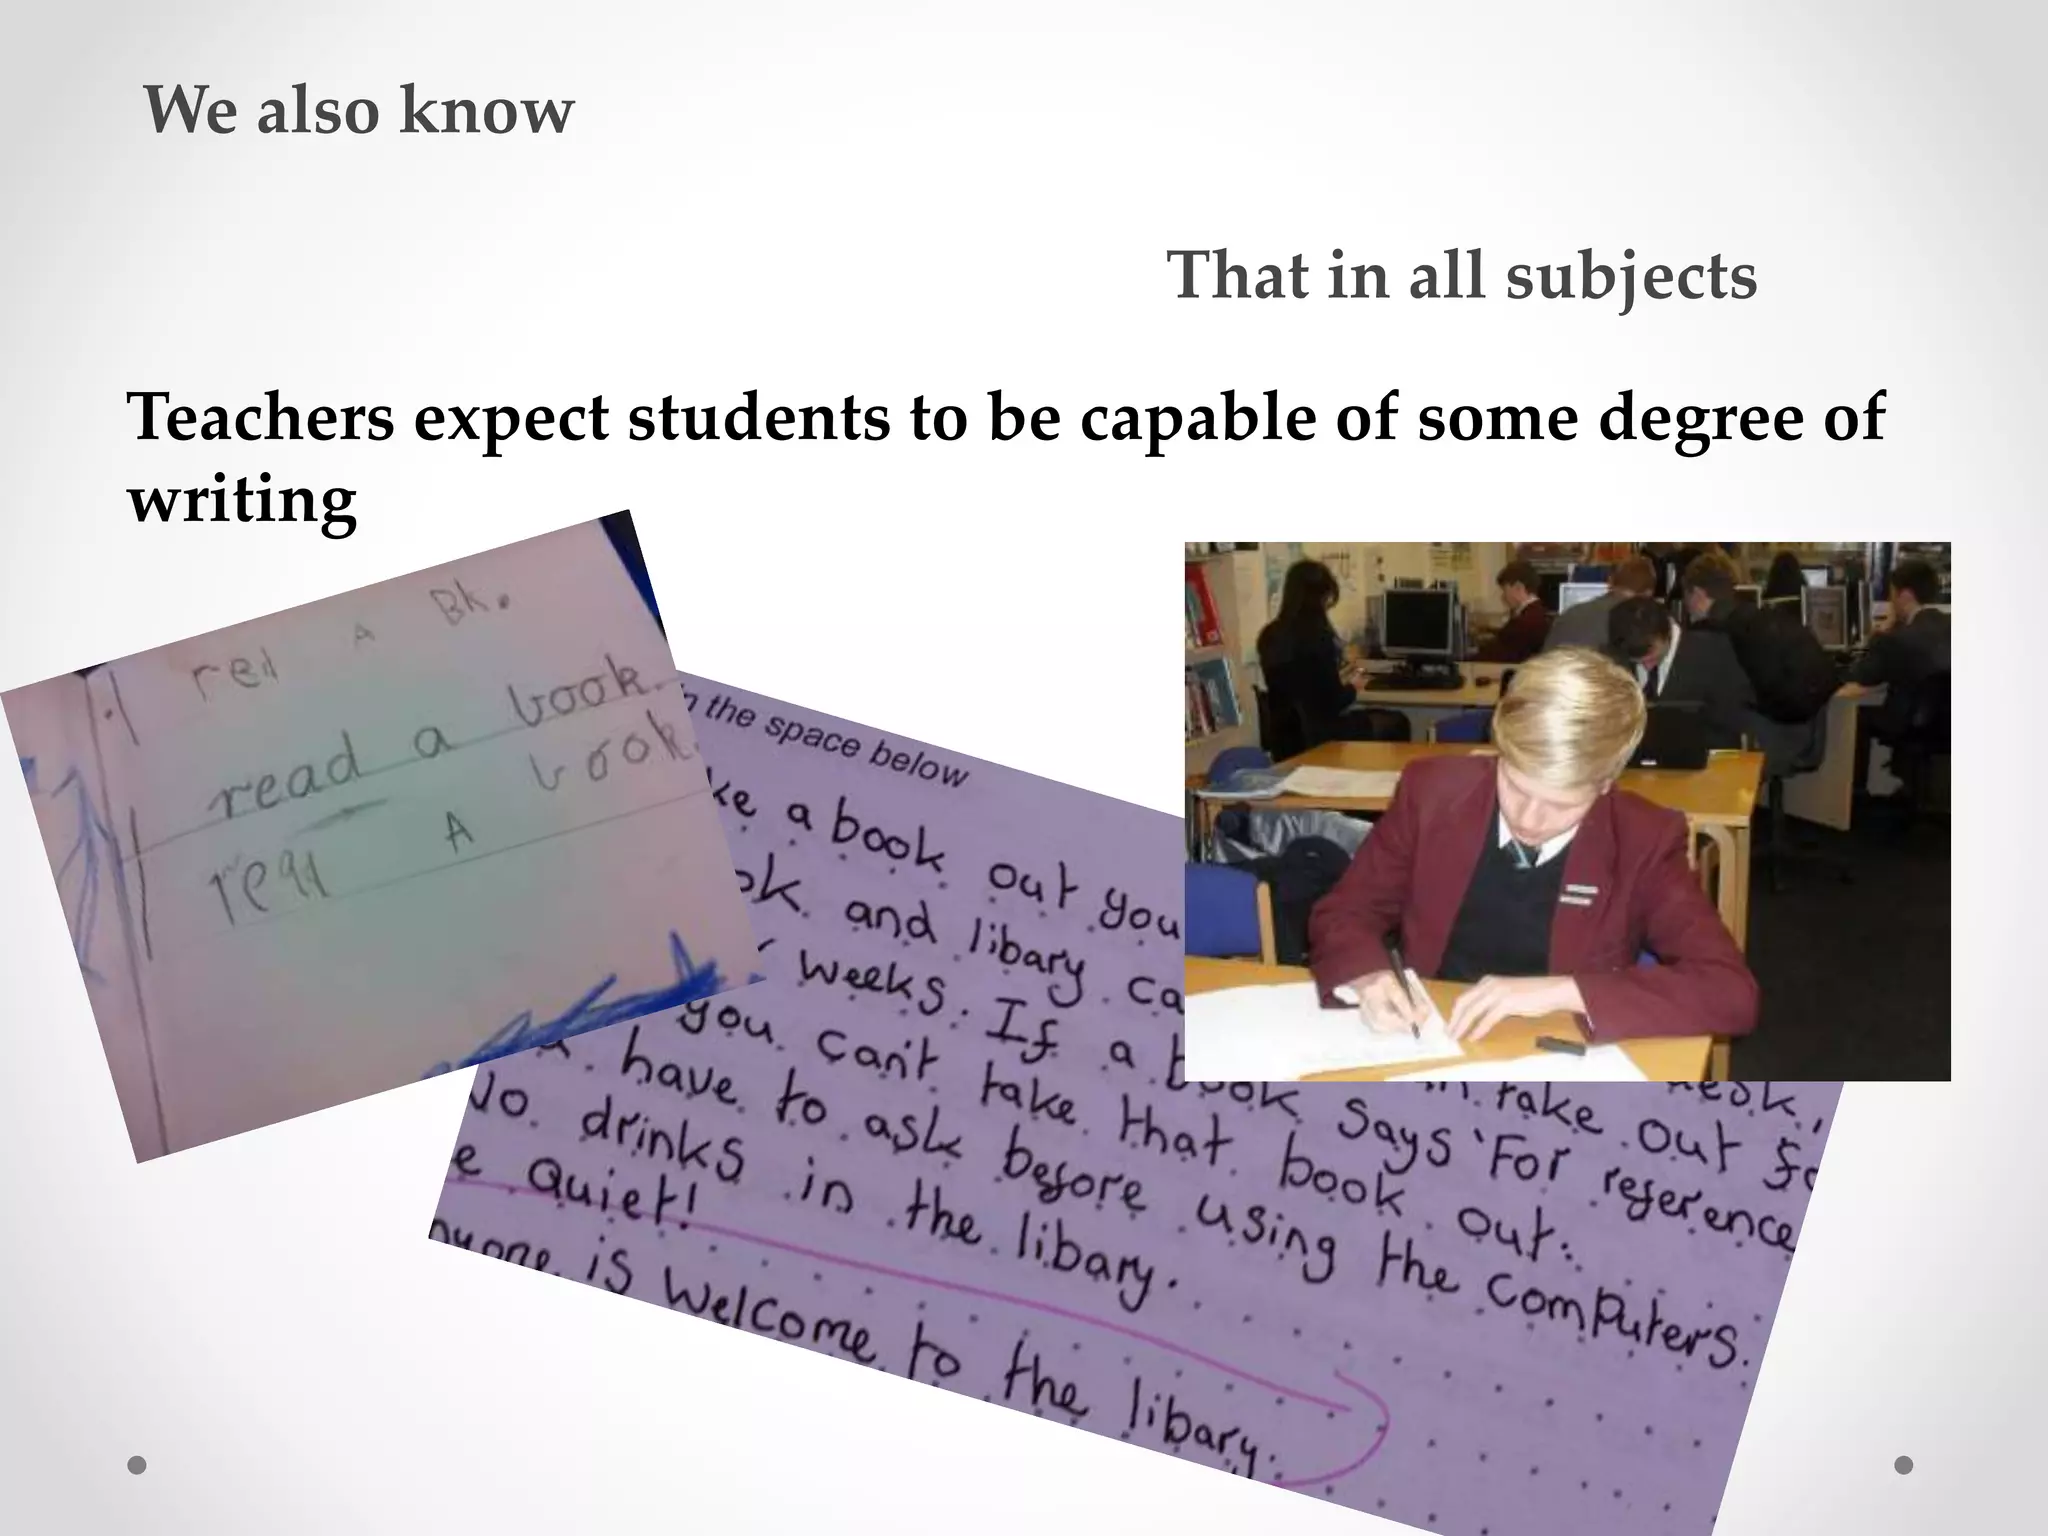 We also know
That in all subjects
Teachers expect students to be capable of some degree of
writing
red A Bk.
read a book.
read A book.
n the space below
ke a book out you
ok and libary ca desk,
weeks. If a b in take out fo
you can't take that book says 'For reference
have to ask before using the computers.
No drinks in the libary.
e quiet!
nyone is welcome to the libary.
book out.